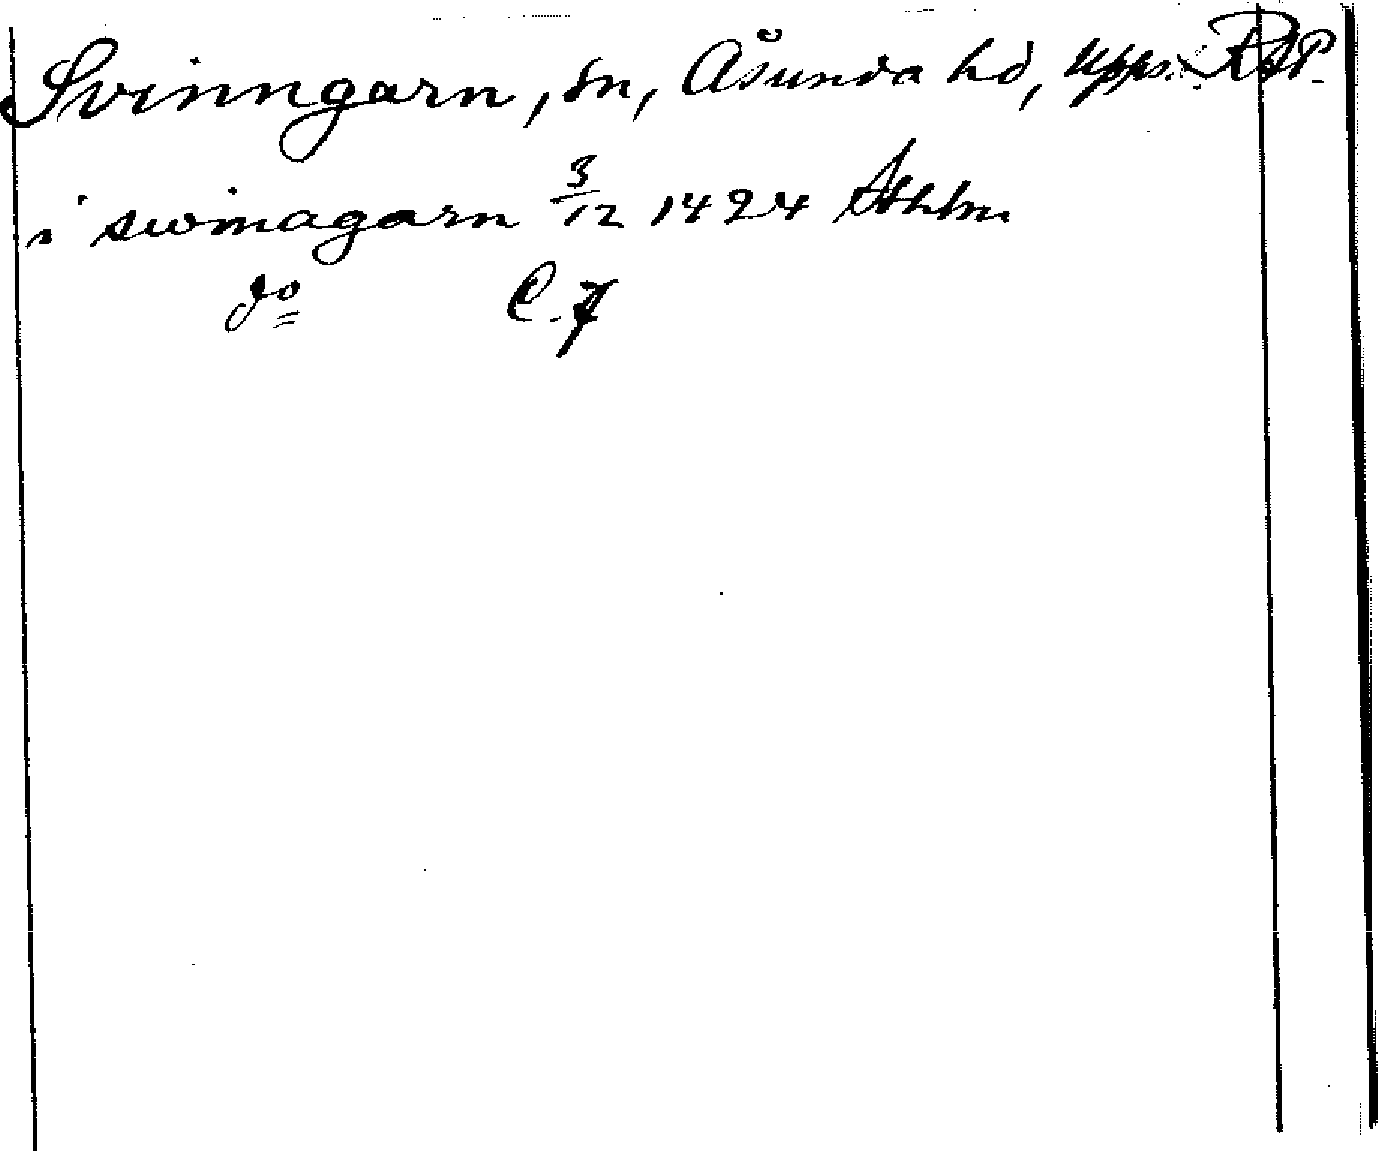 Svinngarn, sn, Åsunda hd, Upps. RAP.
i swinagarn 3/12 1424 Sthlm
do C. 7